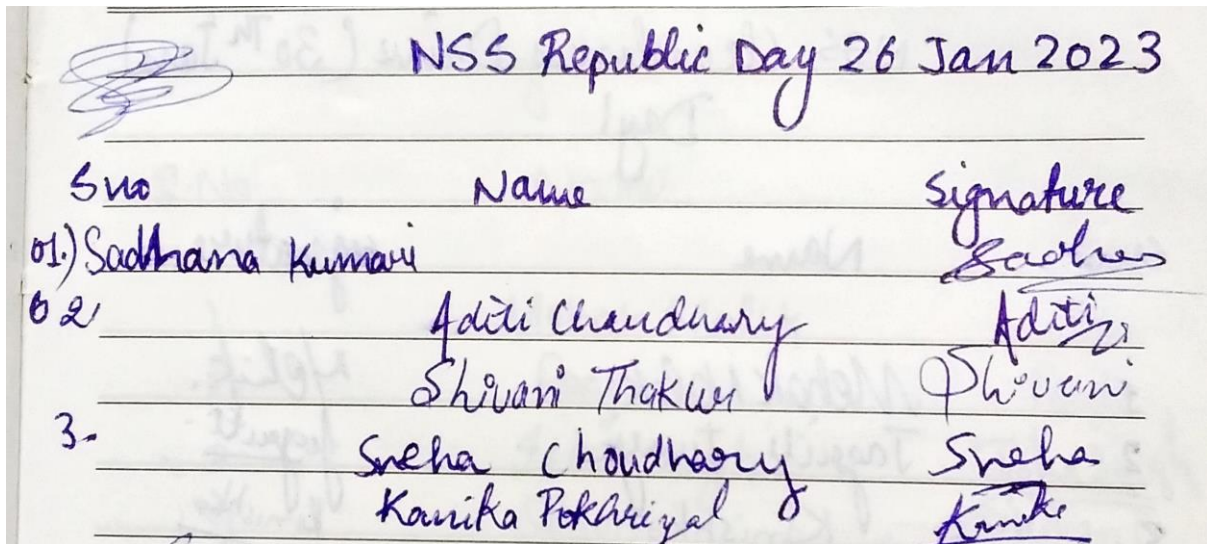 NSS Republic Day 26 Jan 2023
Sno Name Signature
01.) Sadhana Kumari Sadhna
02. Aditi Chaudhary Aditi
Shivani Thakur Shivani
3. Sneha Choudhary Sneha
Kanika Pokhriyal Kanika